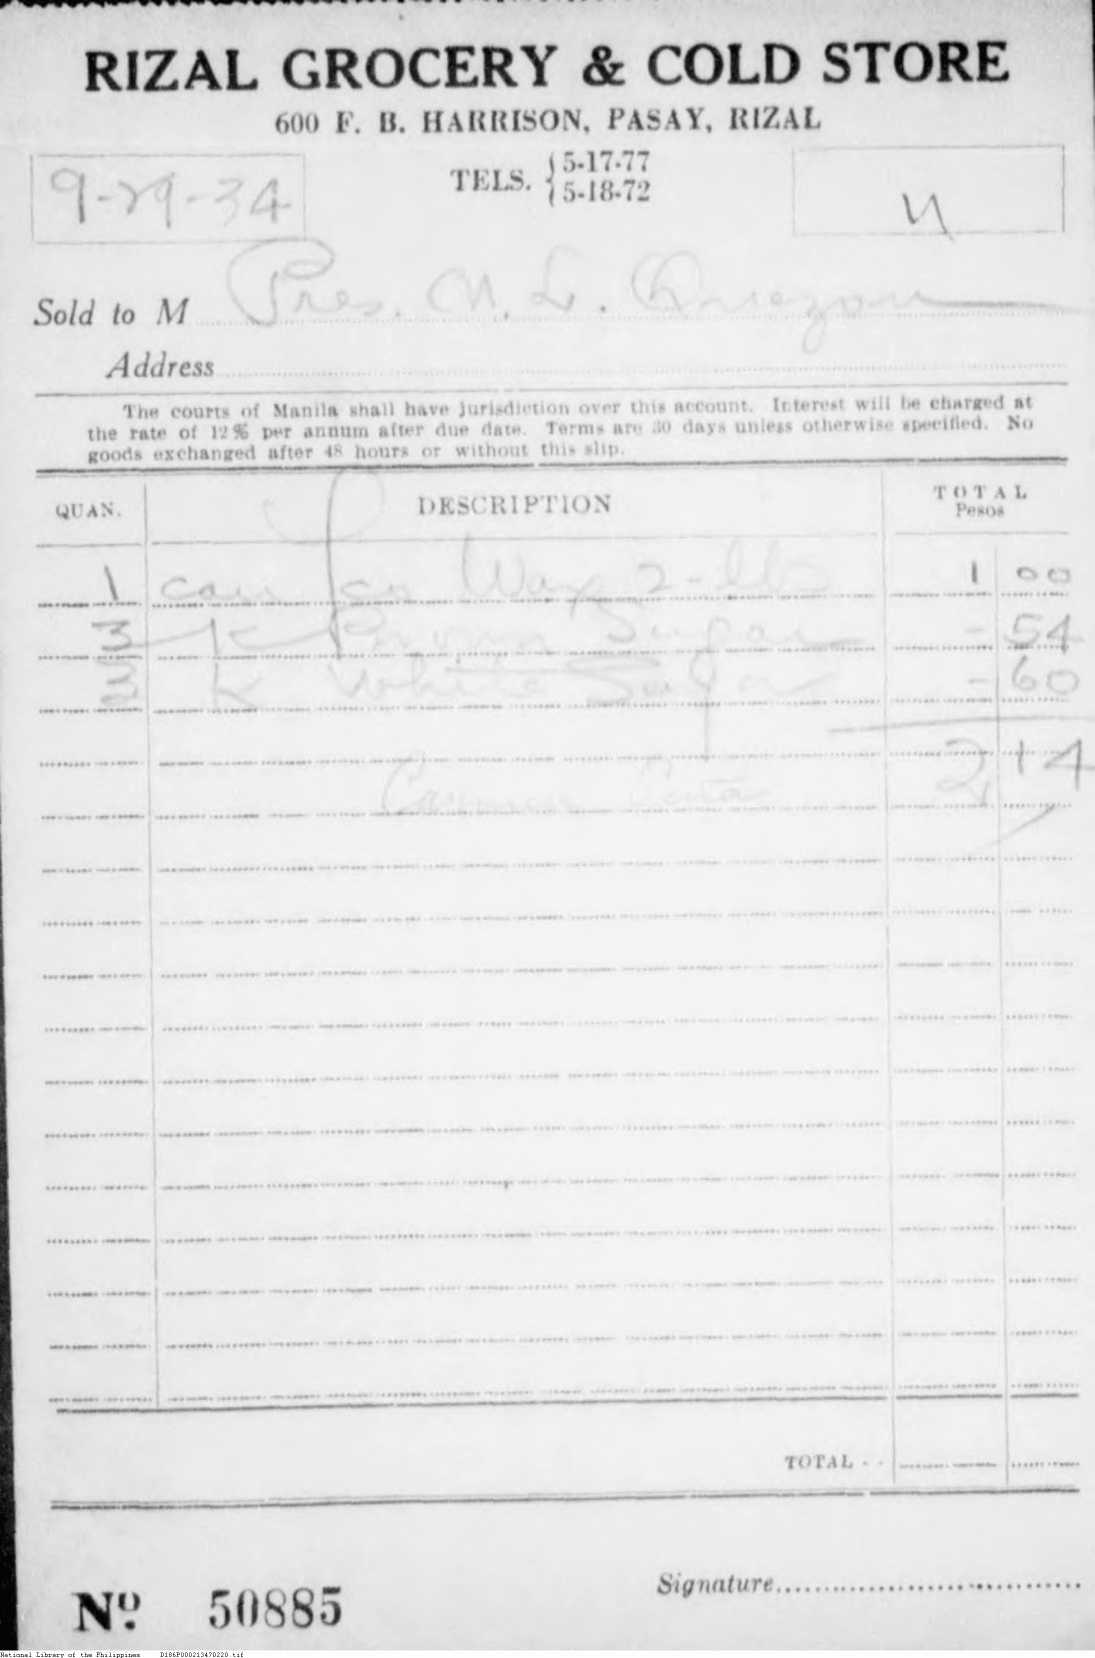 RIZAL GROCERY & COLD STORE
600 F. B. HARRISON, PASAY, RIZAL
TELS. 5-17-77
5-18-72
9-29-34
Sold to M Pres. M. L. Quezon
Address
The courts of Manila shall have jurisdiction over this account. Interest will be charged at
the rate of 12% per annum after due date. Terms are 30 days unless otherwise specified. No
goods exchanged after 48 hours or without this slip.
QUAN. DESCRIPTION TOTAL
Pesos
1 can Wax 2-lb 1 00
3 K Brown Sugar - 54
3 K White Sugar - 60
2 14
TOTAL - -
Signature
Nº 50885
National Library of the Philippines D186P000213470220.tif